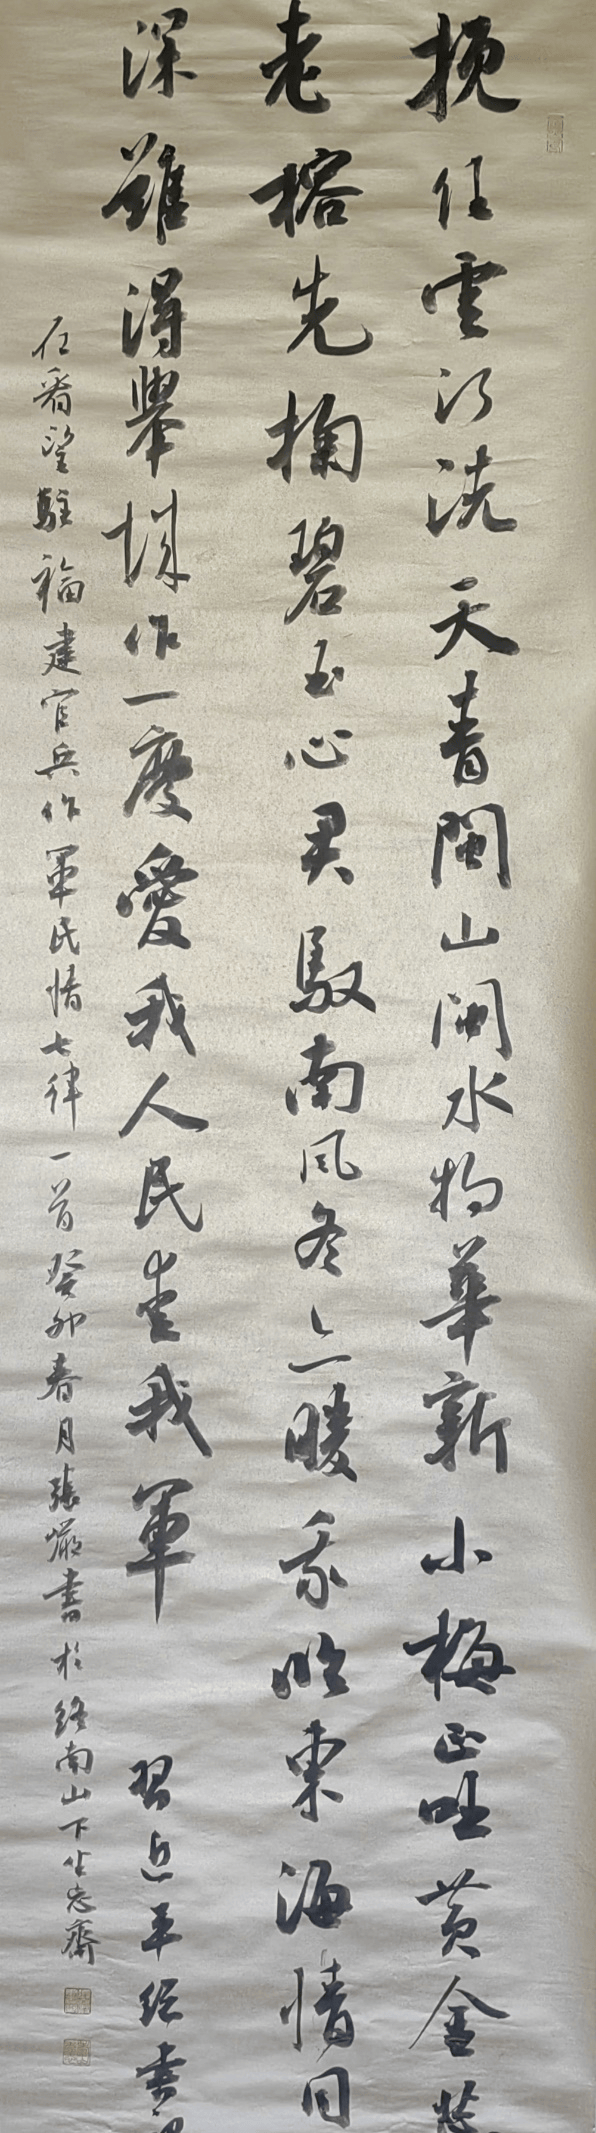 挽住雲河洗天青閩山閩水物華新小梅正吐黄金蕊
老榕先掬碧玉心君馭南風冬亦暖我臨東海情同
深難得舉城作一慶愛我人民爱我軍 習近平總書記
在看望駐福建官兵作軍民情七律一首癸卯春月張巖書於終南山下尘忘齋